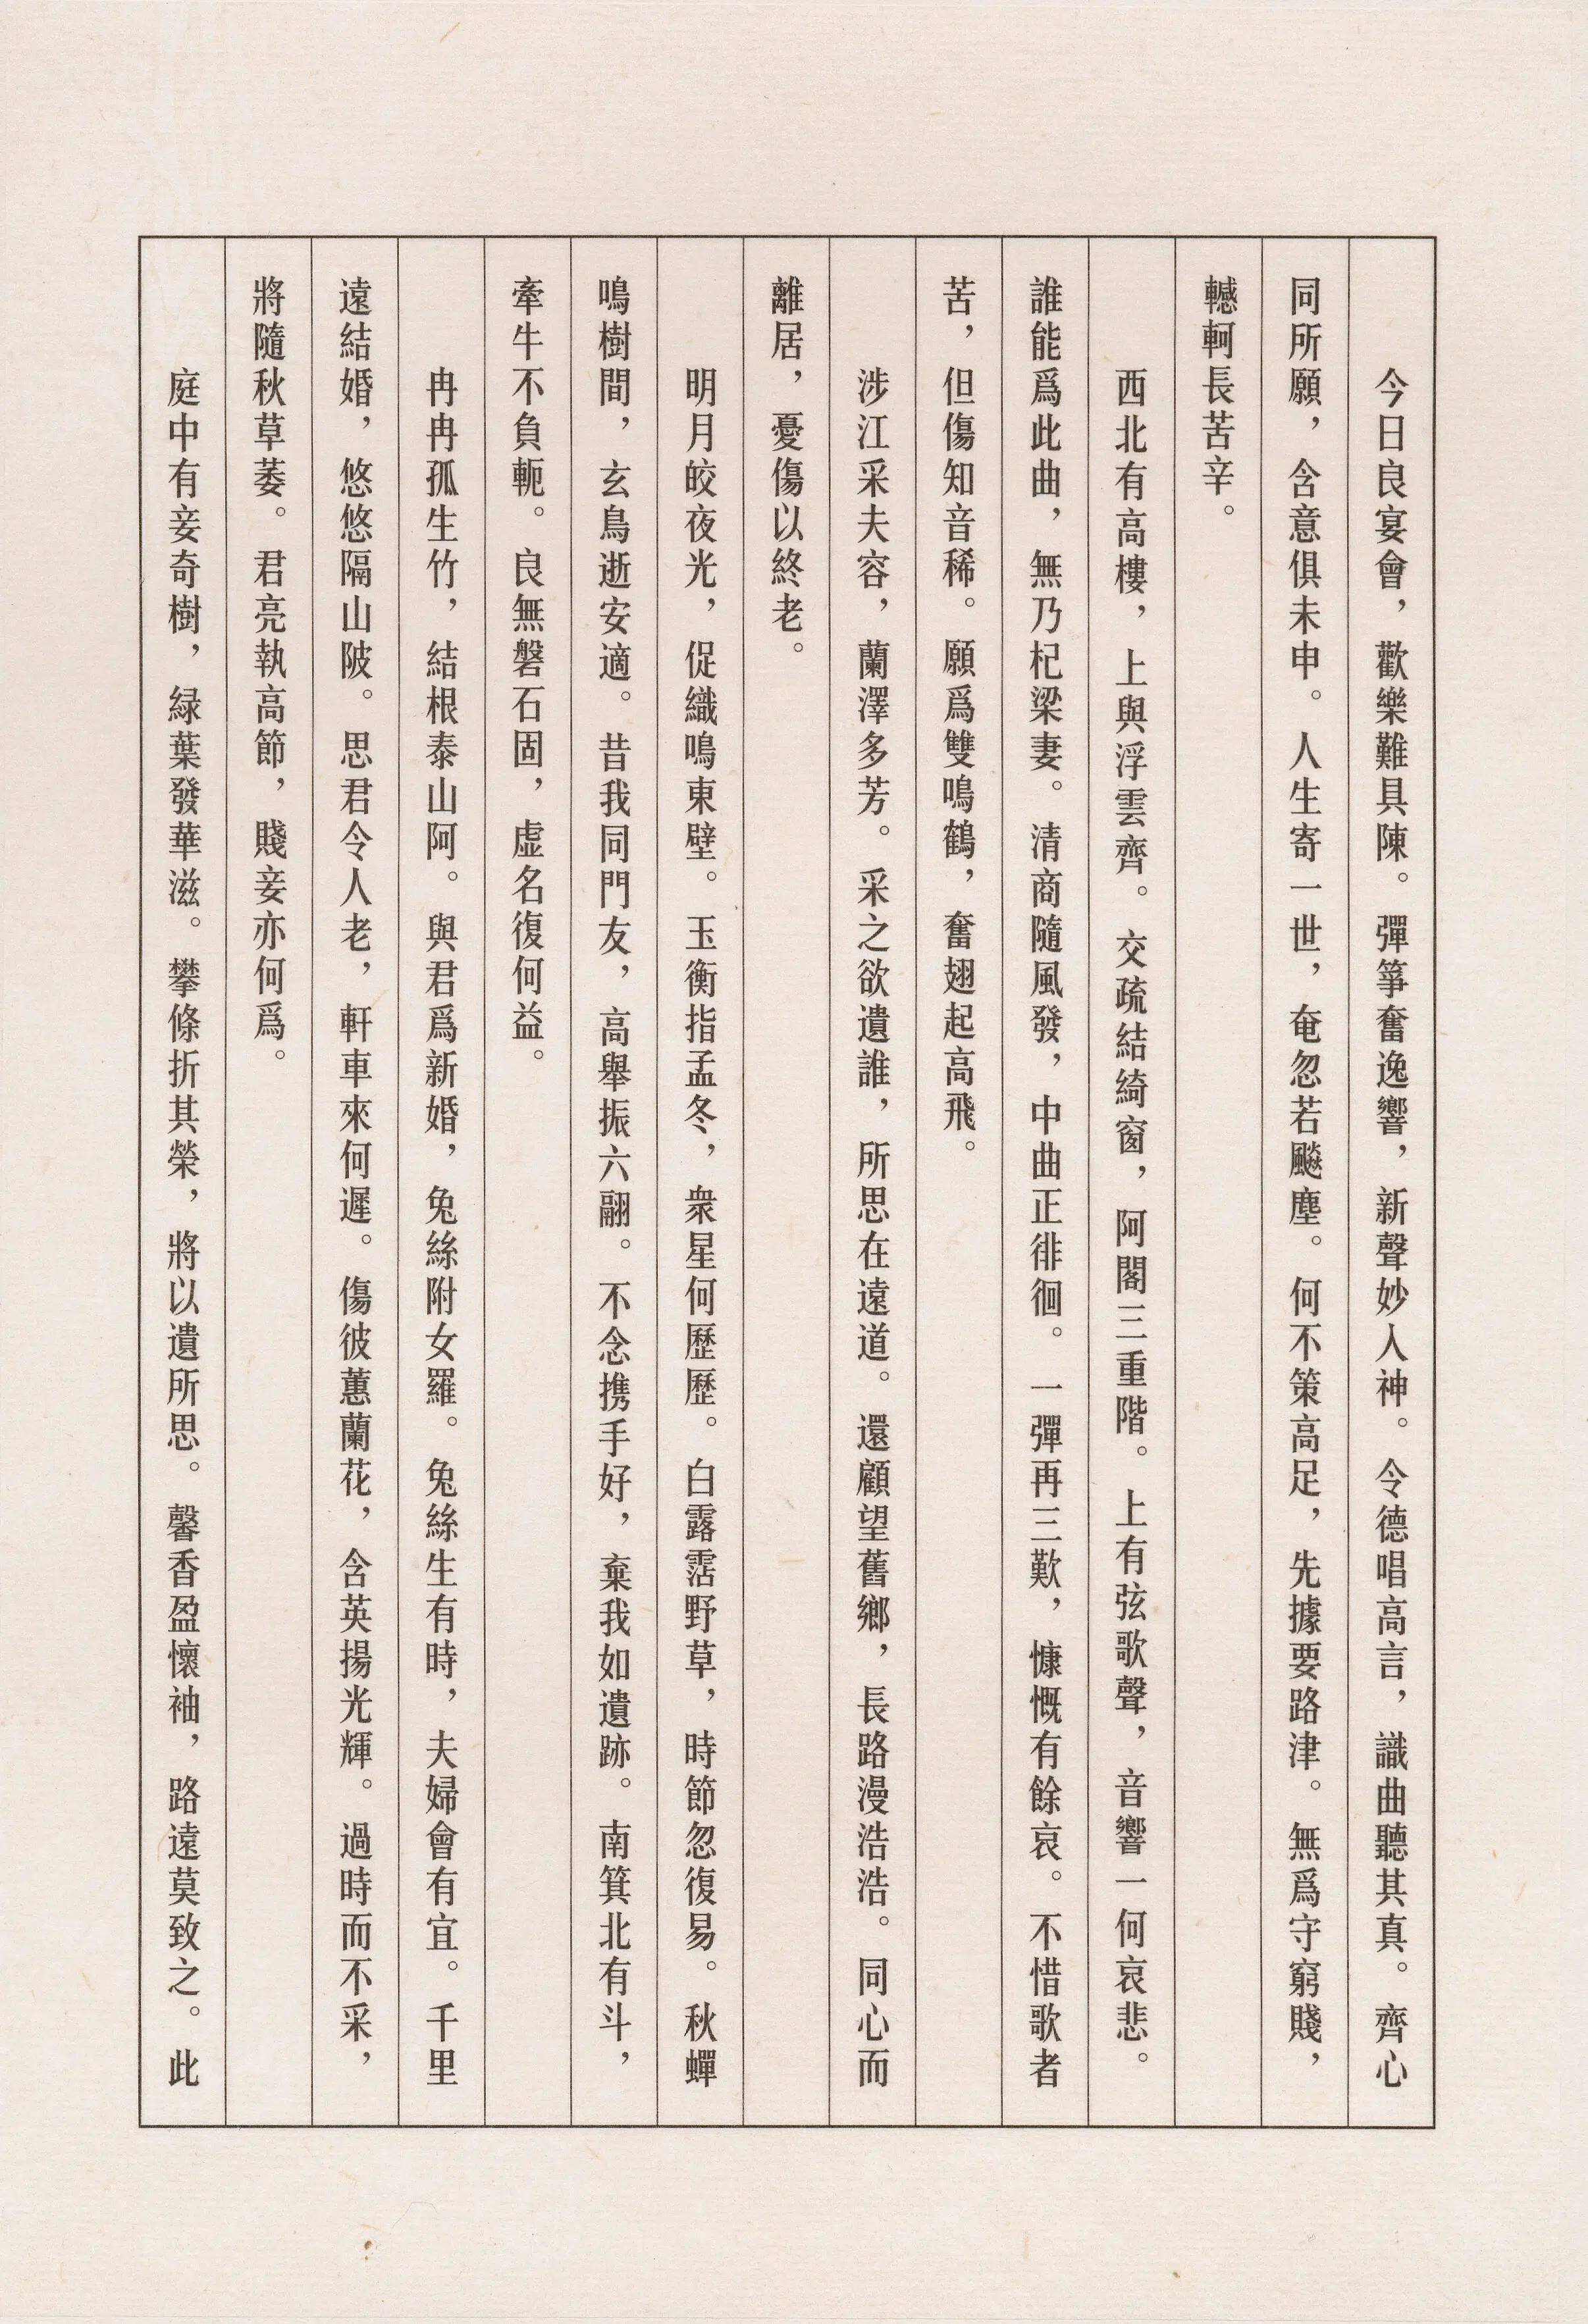 今日良宴會，歡樂難具陳。彈箏奮逸響，新聲妙入神。令德唱高言，識曲聽其真。齊心
同所願，含意俱未申。人生寄一世，奄忽若飈塵。何不策高足，先據要路津。無爲守窮賤，
轗軻長苦辛。
西北有高樓，上與浮雲齊。交疏結綺窗，阿閣三重階。上有弦歌聲，音響一何哀悲。
誰能爲此曲，無乃杞梁妻。清商隨風發，中曲正徘徊。一彈再三歎，慷慨有餘哀。不惜歌者
苦，但傷知音稀。願爲雙鳴鶴，奮翅起高飛。
涉江采夫容，蘭澤多芳。采之欲遺誰，所思在遠道。還顧望舊鄉，長路漫浩浩。同心而
離居，憂傷以終老。
明月皎夜光，促織鳴東壁。玉衡指孟冬，衆星何歷歷。白露霑野草，時節忽復易。秋蟬
鳴樹間，玄鳥逝安適。昔我同門友，高舉振六翮。不念携手好，棄我如遺跡。南箕北有斗，
牽牛不負軛。良無磐石固，虛名復何益。
冉冉孤生竹，結根泰山阿。與君爲新婚，兔絲附女羅。兔絲生有時，夫婦會有宜。千里
遠結婚，悠悠隔山陂。思君令人老，軒車來何遲。傷彼蕙蘭花，含英揚光輝。過時而不采，
將隨秋草萎。君亮執高節，賤妾亦何爲。
庭中有妾奇樹，緑葉發華滋。攀條折其榮，將以遺所思。馨香盈懷袖，路遠莫致之。此